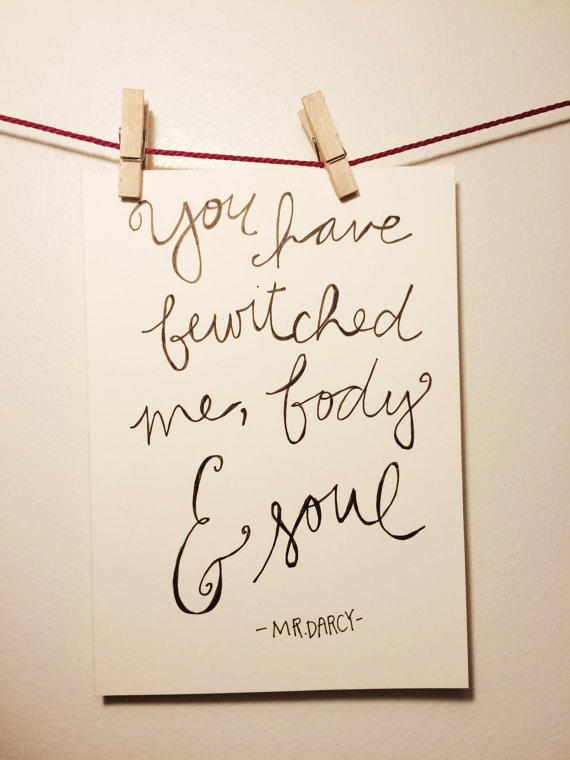 You have
bewitched
me, body
& soul
-MR. DARCY-